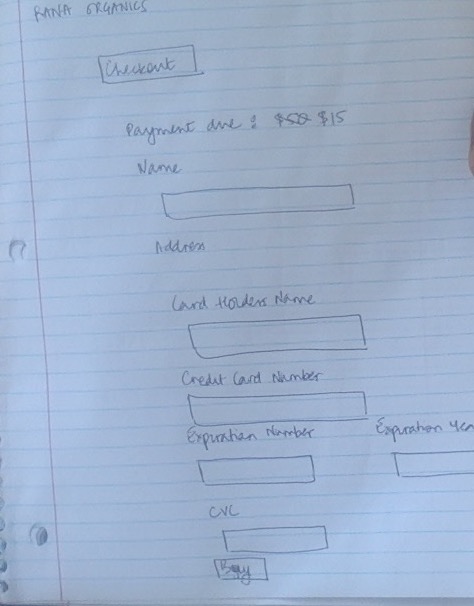 RANA ORGANICS
Checkout
Payment due : $50 $15
Name
Address
Card Holders Name
Credit Card Number
Expiration Number Expiration Yea
CVC
Buy